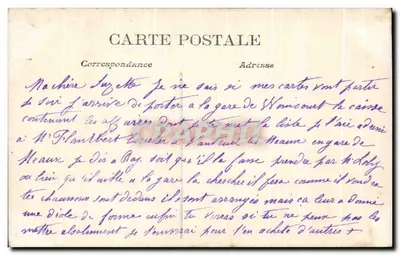 CARTE POSTALE
Correspondance Adresse
Ma chère Suzette je ne sais si mes cartes vont partir
ce soir j'arrive de porter a la gare de la caisse
contenant les affaires dont la liste je l'aie adressé
à Mr Meaux en gare de
Meaux je dis a soit qu'il la fasse prendre par Mr
ou bien qu'il aille a la gare la cherché il fera comme il voudra
les chaussons sont dedans ils sont arrangés mais ça leur a donné
une drole de forme enfin tu verras si tu ne peux pas les
mettre absolument je t'enverrai pour t'en acheté d'autres